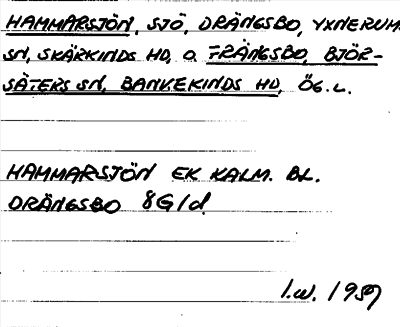 HAMMARSJÖN, SJÖ, DRÄNGSBO, YXNERUM
SN, SKÄRKINDS HD, O. FRÄNGSBO, BJÖR-
SÄTERS SN, BANKEKINDS HD, ÖG. L.
HAMMARSJÖN EK KALM. BL.
DRÄNGSBO 8G1d
I.W. 1959